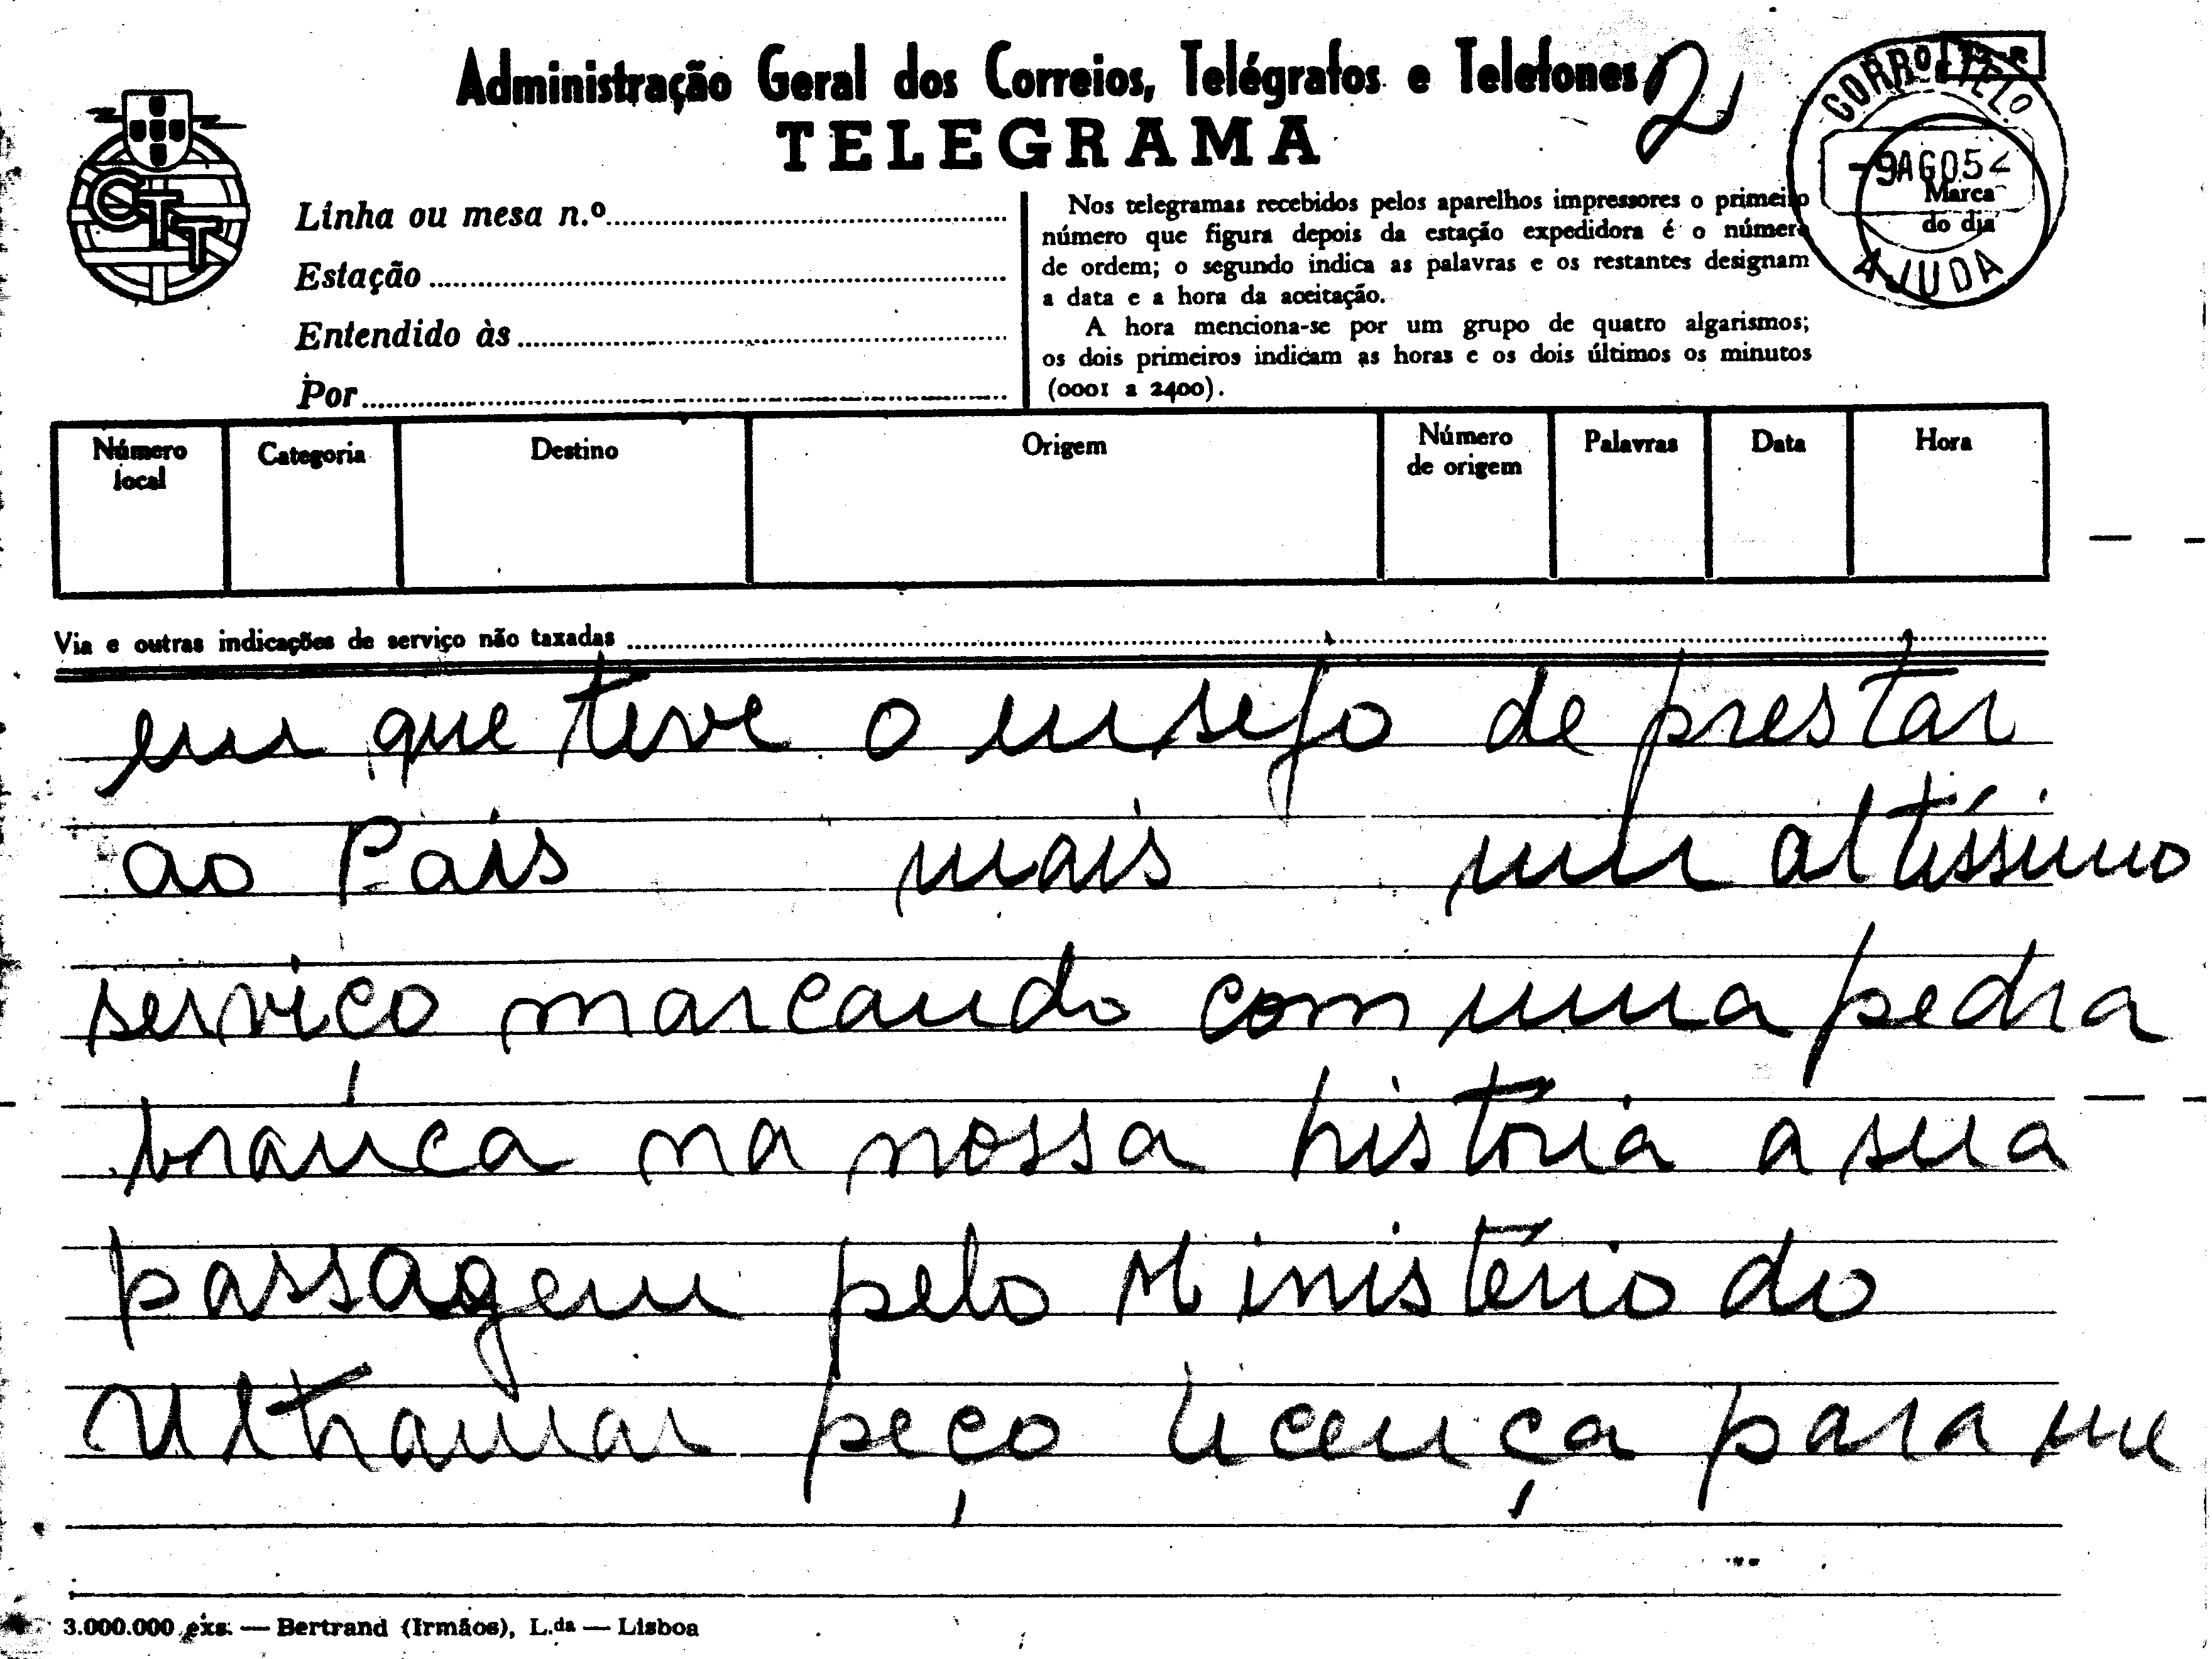 Administração Geral dos Correios, Telégrafos e Telefones 2
TELEGRAMA
CTT
CORRO TELO
-9AGO.52
Marca
do dia
AJUDA
Linha ou mesa n.º
Estação
Entendido às
Por
Nos telegramas recebidos pelos aparelhos impressores o primeiro
número que figura depois da estação expedidora é o número
de ordem; o segundo indica as palavras e os restantes designam
a data e a hora da aceitação.
A hora menciona-se por um grupo de quatro algarismos;
os dois primeiros indicam as horas e os dois últimos os minutos
(0001 a 2400).
Número local Categoria Destino Origem Número de origem Palavras Data Hora
Via e outras indicações de serviço não taxadas
em que teve o ensejo de prestar
ao País mais um altíssimo
serviço marcando com uma pedra
branca na nossa história a sua
passagem pelo Ministério do
Ultramar peço licença para me
3.000.000 exs. — Bertrand (Irmãos), L.da — Lisboa